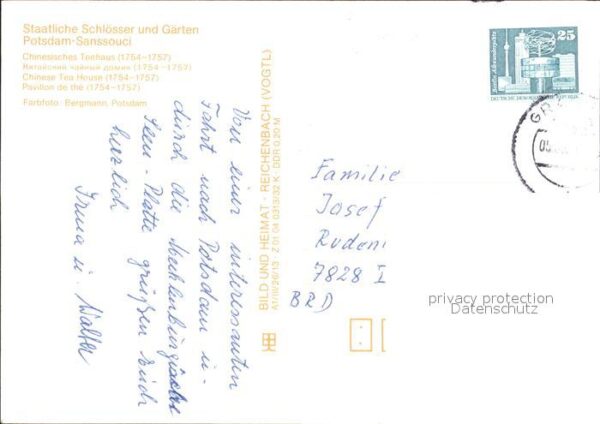 Staatliche Schlösser und Gärten
Potsdam-Sanssouci
Chinesisches Teehaus (1754-1757)
Китайский чайный домик (1754-1757)
Chinese Tea House (1754-1757)
Pavillon de thé (1754-1757)
Farbfoto: Bergmann, Potsdam
Von einer interessanten
Fahrt nach Potsdam u.
durch die Mecklenburgische
Seen-Platte grüßen Euch
herzlich
Irma u. Walter
BILD UND HEIMAT · REICHENBACH (VOGTL)
A1/III/26/13 · Z 01 04 0313/32 K · DDR 0,20 M
25
DEUTSCHE DEMOKRATISCHE REPUBLIK
Familie
Josef
Ruden
7828 I
BRD
privacy protection
Datenschutz